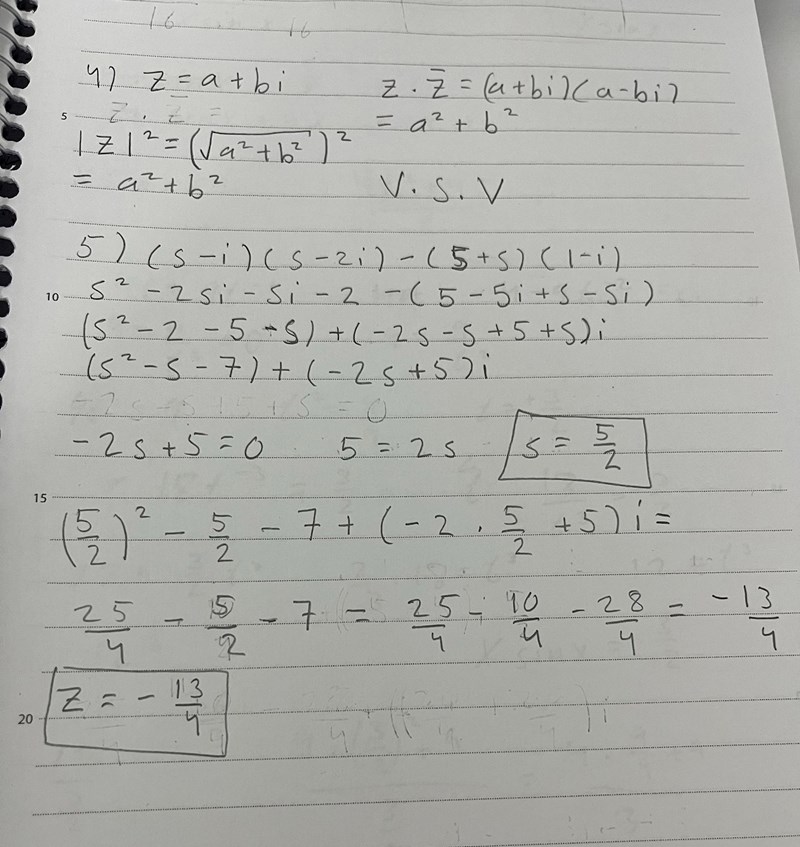 16 16
4) z = a + bi z · z̄ = (a+bi)(a-bi)
5 z · z̄ = = a² + b²
|z|² = (√a²+b²)²
= a² + b² V.S.V
5) (s-i)(s-2i) - (5+s)(1-i)
10 s² - 2si - si - 2 - (5 - 5i + s - si)
(s² - 2 - 5 - s) + (-2s - s + 5 + s)i
(s² - s - 7) + (-2s + 5)i
-2s - s + 5 + s = 0
-2s + 5 = 0 5 = 2s s = 5/2
15
(5/2)² - 5/2 - 7 + (-2 · 5/2 + 5)i =
25/4 - 5/2 - 7 = 25/4 - 10/4 - 28/4 = -13/4
z = - 13/4
20